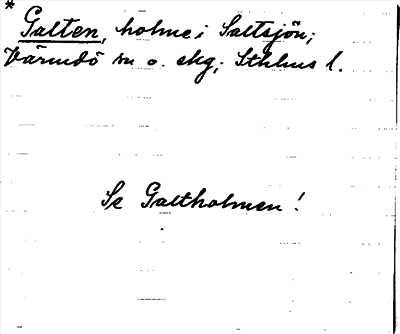 * Galten, holme i Saltsjön;
Värmdö sn o. skg; Sthlms l.
Se Galtholmen!